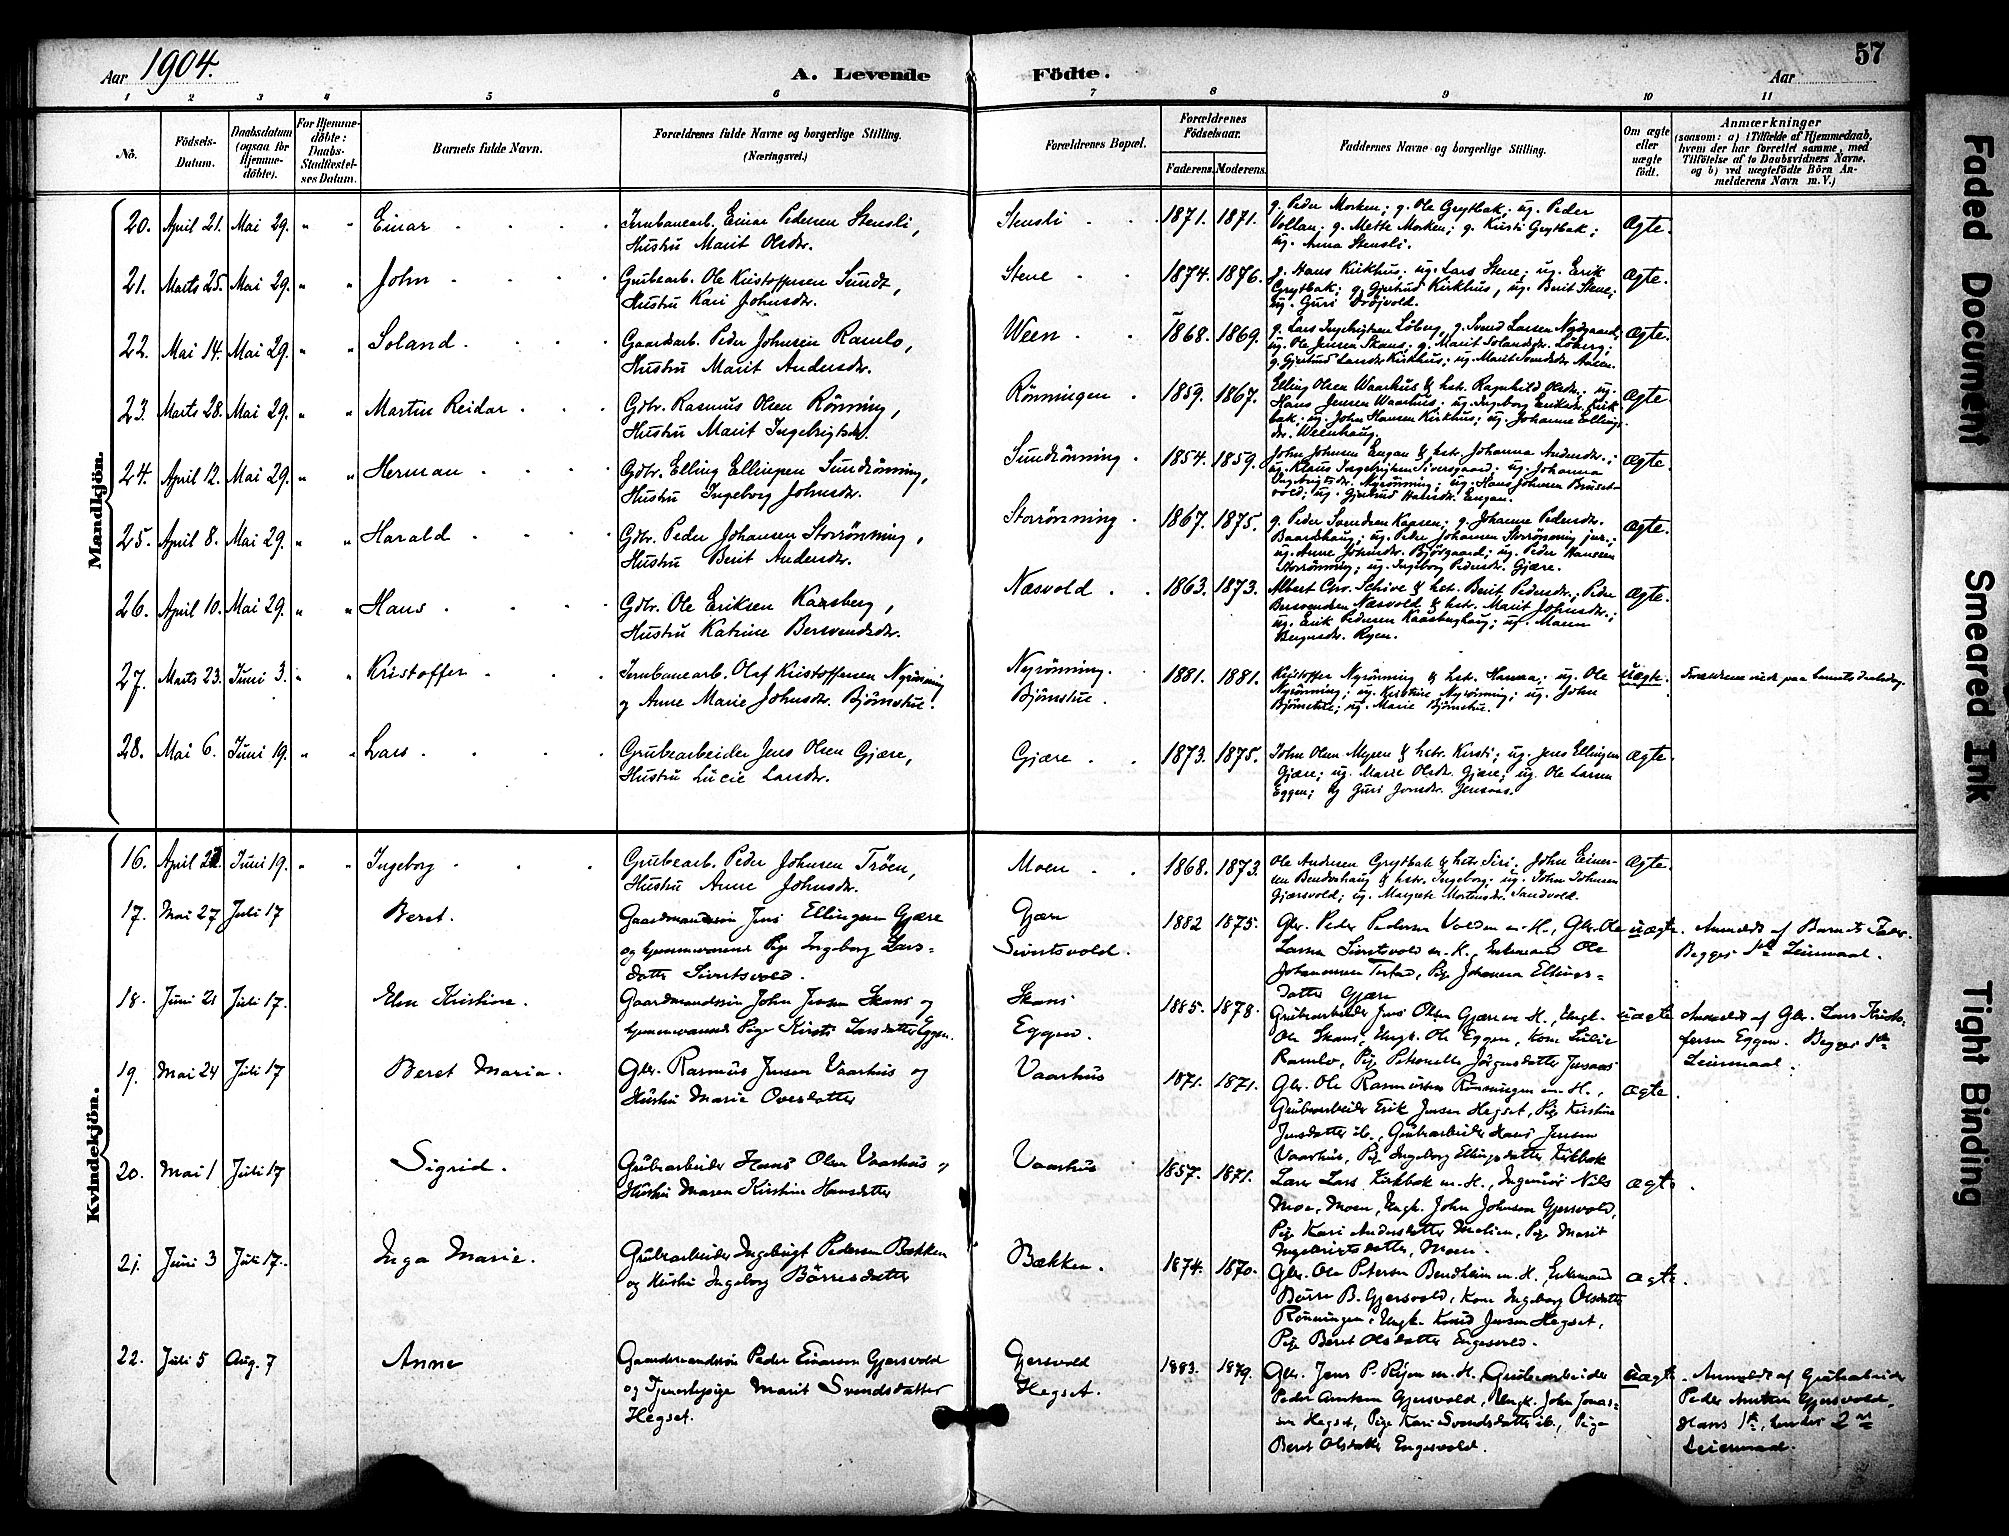 Aar 1904.
A. Levende
Födte.
Aar
57
1 2 3 4 5 6 7 8 9 10 11
No.
Födsels-
Datum.
Daabsdatum
(ogsaa for
Hjemme-
döbte).
For Hjemme-
döbte:
Daabs-
Stadfæstel-
ses Datum.
Barnets fulde Navn.
Forældrenes fulde Navne og borgerlige Stilling.
(Næringsvei.)
Forældrenes Bopæl.
Forældrenes
Födselsaar.
Faderens. Moderens.
Faddernes Navne og borgerlige Stilling.
Om ægte
eller
uægte
födt.
Anmærkninger
(saasom: a) i Tilfælde af Hjemmedaab,
hvem der har forrettet samme, med
Tilföielse af to Daabsvidners Navne,
og b) ved uægtefödte Börn An-
melderens Navn m.V.)
Mandkjön.
20. April 21. Mai 29. " " Einar
Jernbanearb. Einar Pedersen Stensli,
Hustru Marit Olsdr.
Stensli 1871. 1871.
g. Peder Morken; g. Ole Grytbak; ug. Peder
Vollan; g. Mette Morken; g. Kirsti Grytbak;
ug. Anna Stensli.
Ægte.
21. Marts 25. Mai 29. " " John
Grubearb. Ole Kristoffersen Sundt,
Hustru Kari Johnsdr.
Stene 1874. 1876.
g. Hans Kirkhus; ug. Lars Stene; ug. Erik
Grytbak; g. Gjertrud Kirkhus, ug. Berit Stene;
ug. Guri Drøjvold.
Ægte.
22. Mai 14. Mai 29. " " Soland
Gaardarb. Peder Johnsen Ramlo,
Hustru Marit Andersdr.
Ween 1868. 1869.
g. Lars Ingebrigtsen Löberg, g. Svend Larsen Nygaard;
ug. Ole Jensen Skans; g. Marit Solandsdr. Löberg;
g. Gjertrud Larsdr Kirkhus; ug. Marit Svendsdr.
Ægte.
23. Marts 28. Mai 29. " " Martin Reidar
Gdbr. Rasmus Olsen Rönning,
Hustru Marit Ingebrigtsdr.
Rönningen 1859. 1867.
Elling Olsen Waarhus & hst. Ragnhild Olsdr.; ug.
Hans Jensen Waarhus; ug. Ingeborg Eriksdr. Kirk
bak; ug. John Hansen Kirkhus; ug. Johanne Ellings
dr. Weenhaug.
Ægte
24. April 12. Mai 29. " " Herman
Gdbr. Elling Ellingsen Sundrönning,
Hustru Ingeborg Johnsdr.
Sundrönning 1854. 1859.
John Johnsen Engan & hst. Johanna Andersdr.;
ug. Klaus Ingebrigtsen Siversgaard; ug. Johanna
Ingebrigtsdr. Nyrönning; ug. Hans Johnsen Bruset-
vold; ug. Gjertrud Hansdr. Engan.
Ægte.
25. April 8. Mai 29. " " Harald
Gdbr. Peder Johansen Storrönning,
Hustru Berit Andersdr.
Storrönning 1867. 1875.
g. Peder Svendsen Kaasen; g. Johanne Pedersdr.
Baardshaug; ug. Peder Johansen Storrönning jun.;
ug. Anne Johnsdr. Björgaard; ug. Peder Hansen
Storrönning; ug. Ingeborg Pedersdr. Gjære.
Ægte.
26. April 10. Mai 29. " " Hans
Gdbr. Ole Eriksen Kaasberg,
Hustru Katrine Bersvendsdr.
Næsvold 1863. 1873.
Albert Chr. Schive & hst. Berit Pedersdr.; Peder
Bersvendsen Næsvold & hst. Marit Johnsdr.;
ug. Erik Pedersen Kaasberghaug; ug. Maren
Ryen.
Ægte.
27. Marts 23. Juni 3. " " Kristoffer
Jernbanearb. Olaf Kristoffersen Nyrönning
og Anne Marie Johnsdr. Bjömstue.
Nyrönning.
Bjömstue.
1881. 1881.
Kristoffer Nyrönning & hst. Hanna; ug. Ole
Nyrönning; ug. Kristine Nyrönning; ug. John
Bjömstue; ug. Marie Bjömstue.
uægte.
Forældrene viede paa barnets daabsdag.
28. Mai 6. Juni 19. " " Lars
Grubearbeider Jens Olsen Gjære,
Hustru Lucie Larsdr.
Gjære 1873. 1875.
John Olsen Mysen & hst. Kirsti; ug. Jens Ellingsen
Gjære; ug. Marie Olsdr. Gjære; ug. Ole Larsen
Eggen; ug Guri Jonsdr. Jensaas.
Ægte.
Kvindekjön.
16. April Juni 19. " " Ingeborg
Grubearb. Peder Johnsen Tröen,
Hustru Anne Johnsdr.
Moen 1868. 1873.
Ole Andersen Grytbak & hst. Siri; John Einer-
sen Bendoshaug & hst. Ingeborg; ug. John Johnsen
Gjærsvold; ug. Margrete Mortensdr. Sandvold.
Ægte.
17. Mai 27 Juli 17 Beret.
Gaardmandssön Jens Ellingsen Gjære
og hjemmeværende Pige Ingeborg Lars-
datter Sivertsvold.
Gjære
Sivertsvold.
1882 1875.
Gbr. Peder Pedersen Volden m. H., Gbr. Ole
Larsen Sivertsvold m. H., Enkemand Ole
Johannesen, Pige Johanna Ellings-
datter Gjære
uægte.
Anmeldt af Barnets Fader.
Begges 1ste Leiermaal.
18. Juni 21 Juli 17. Elen Kristine.
Gaardmandssön John Jensen Skans og
hjemmeværende Pige Kirsti Larsdatter Eggen.
Skans
Eggen.
1885. 1878.
Grubearbeider Jens Olsen Gjære m. H., Ungk.
Ole Skans, Ungk. Ole Eggen, Kone Lucie
Ramlo, Pige Petronelle Jörgensdatter Jensaas
uægte
Anmeldt af Gbr. Lars Kristo-
fersen Eggen. Begges 1ste
Leiermaal.
19. Mai 24 Juli 17 Beret Maria.
Gbr. Rasmus Jensen Vaarhus og
Hustru Marie Ovesdatter
Vaarhus 1871. 1871.
Gbr. Ole Rasmussen Rönningen m. H.,
Grubearbeider Erik Jensen Hegset, Pige Kirstine
Jensdatter ib., Grubearbeider Hans Jensen
Vaarhus, Pige Ingeborg Ellingsdatter Kirkbak
ægte.
20. Mai 1 Juli 17 Sigrid.
Grubearbeider Hans Olsen Vaarhus og
Hustru Maren Kirstine Hansdatter
Vaarhus 1857. 1871.
Lærer Lars Kirkbak m. H., Ingeniör Nils
Moe, Moen, Ungk. John Johnsen Gjersvold,
Pige Kari Andersdatter Melien, Pige Marit
Ingebrigtsdatter, Moen.
ægte.
21. Juni 3 Juli 17. Inga Marie.
Grubearbeider Ingebrigt Pedersen Bækken
og Hustru Ingeborg Börresdatter
Bækken. 1874. 1870.
Gbr. Ole Petersen Bendheim m. H., Enkemand
Börre B. Gjersvold, Kone Ingeborg Olsdatter
Rönningen, Ungk. Knud Jensen Hegset,
Pige Beret Olsdatter Engesvold.
ægte.
22. Juli 5 Aug. 7 Anne
Gaardmandssön Peder Einarsen Gjersvold
og Tjenestepige Marit Svendsdatter
Hegset.
Gjersvold
Hegset.
1883. 1879.
Gbr. Jens P. Ryen m. H., Grubearbeider
Peder Arntsen Gjersvold, Ungk. John Jonas-
sen Hegset, Pige Kari Svendsdatter ib., Pige
Beret Olsdatter Engesvold.
uægte.
Anmeldt af Grubearbeider
Peder Arntsen Gjersvold.
Hans 1ste, hendes 2det
Leiermaal.
Faded Document
Smeared Ink
Tight Binding